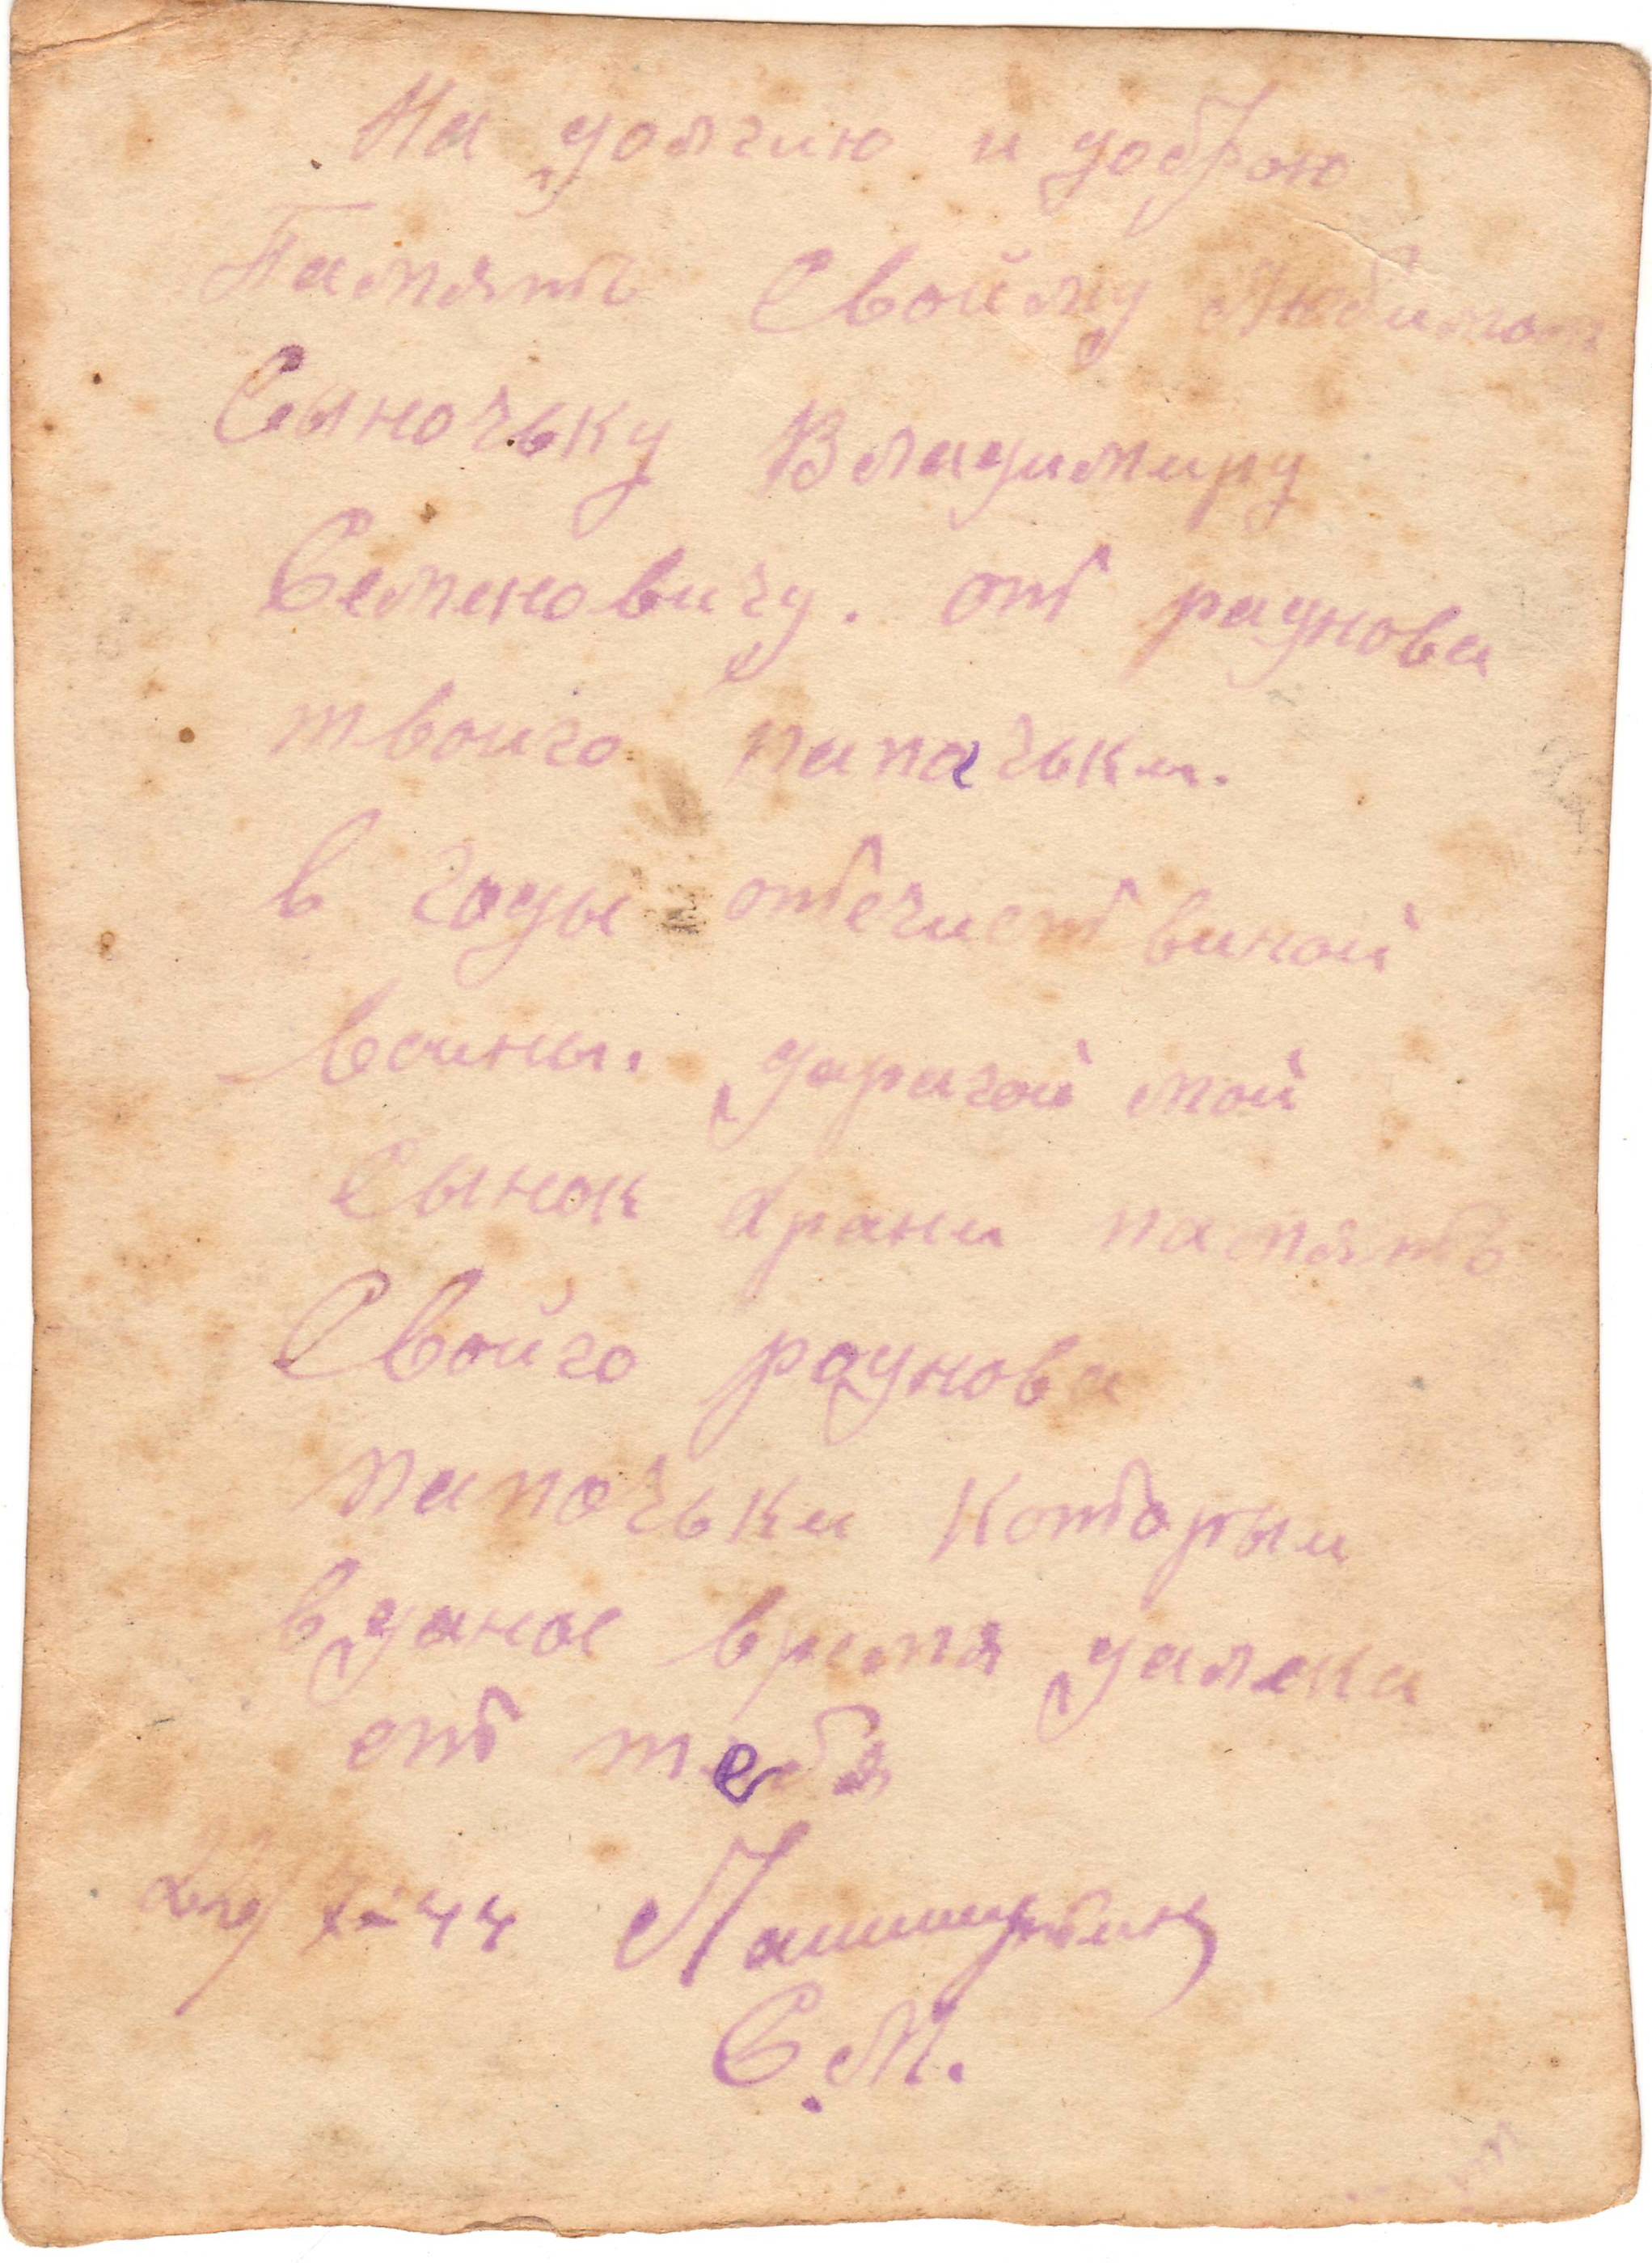 На долгию и доброю
Память Свойму Любимом
Сыночьку Владимиру
Семеновичу. от раднова
твоиго папачьки.
в годы отечиствиной
воины. дарагой мой
Сынок храни память
Свойго роднова
папочьки которыи
в даное время далека
от тебя
22/X-44
С.М.